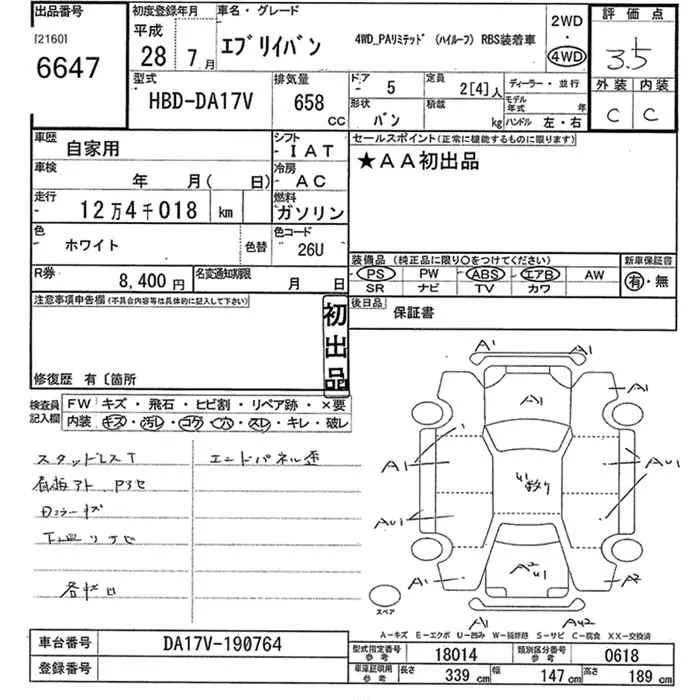 出品番号
[2160]
6647
初度登録年月
平成
28 年 7 月
車名・グレード
エブリイバン
4WD_PAリミテッド (ハイルーフ) RBS装着車
2WD
・
4WD
評価点
3.5
外装 内装
C C
型式
HBD-DA17V
排気量
658 CC
ドア
- 5
定員
2[4]人
ディーラー・並行
形状
バン
積載
kg
モデル年式 年
ハンドル 左・右
車歴
自家用
シフト
- IAT
車検
年 月( 日)
冷房
- AC
走行
- 12万4千018 km
燃料
ガソリン
色
- ホワイト
色替
色コード
- 26U
R券
8,400円
名変通知期限
月 日
セールスポイント(正常に機能するものに限ります)
★AA初出品
装備品 (純正品に限り○をつけてください)
新車保証書
PS PW ABS エアB AW
SR ナビ TV カワ
有・無
後日品
保証書
注意事項申告欄(不具合内容等は具体的に記入して下さい)
初出品
修復歴 有〔箇所
検査員記入欄
FW キズ・飛石・ヒビ割・リペア跡・×要
内装 キズ・汚レ・コゲ・穴・スレ・キレ・破レ
スタッドレスT
エンドパネル歪
A1 A1
A1
A1
A1
AU1
AU1
A1
A2
A2
U1
A1
AU2
スペア
A-キズ E-エクボ U-凹み W-補修跡 S-サビ C-腐食 XX-交換済
車台番号
DA17V-190764
登録番号
型式指定番号
参考
18014
類別区分番号
参考
0618
車庫証明用
参考
長さ 339 cm 幅 147 cm 高さ 189 cm